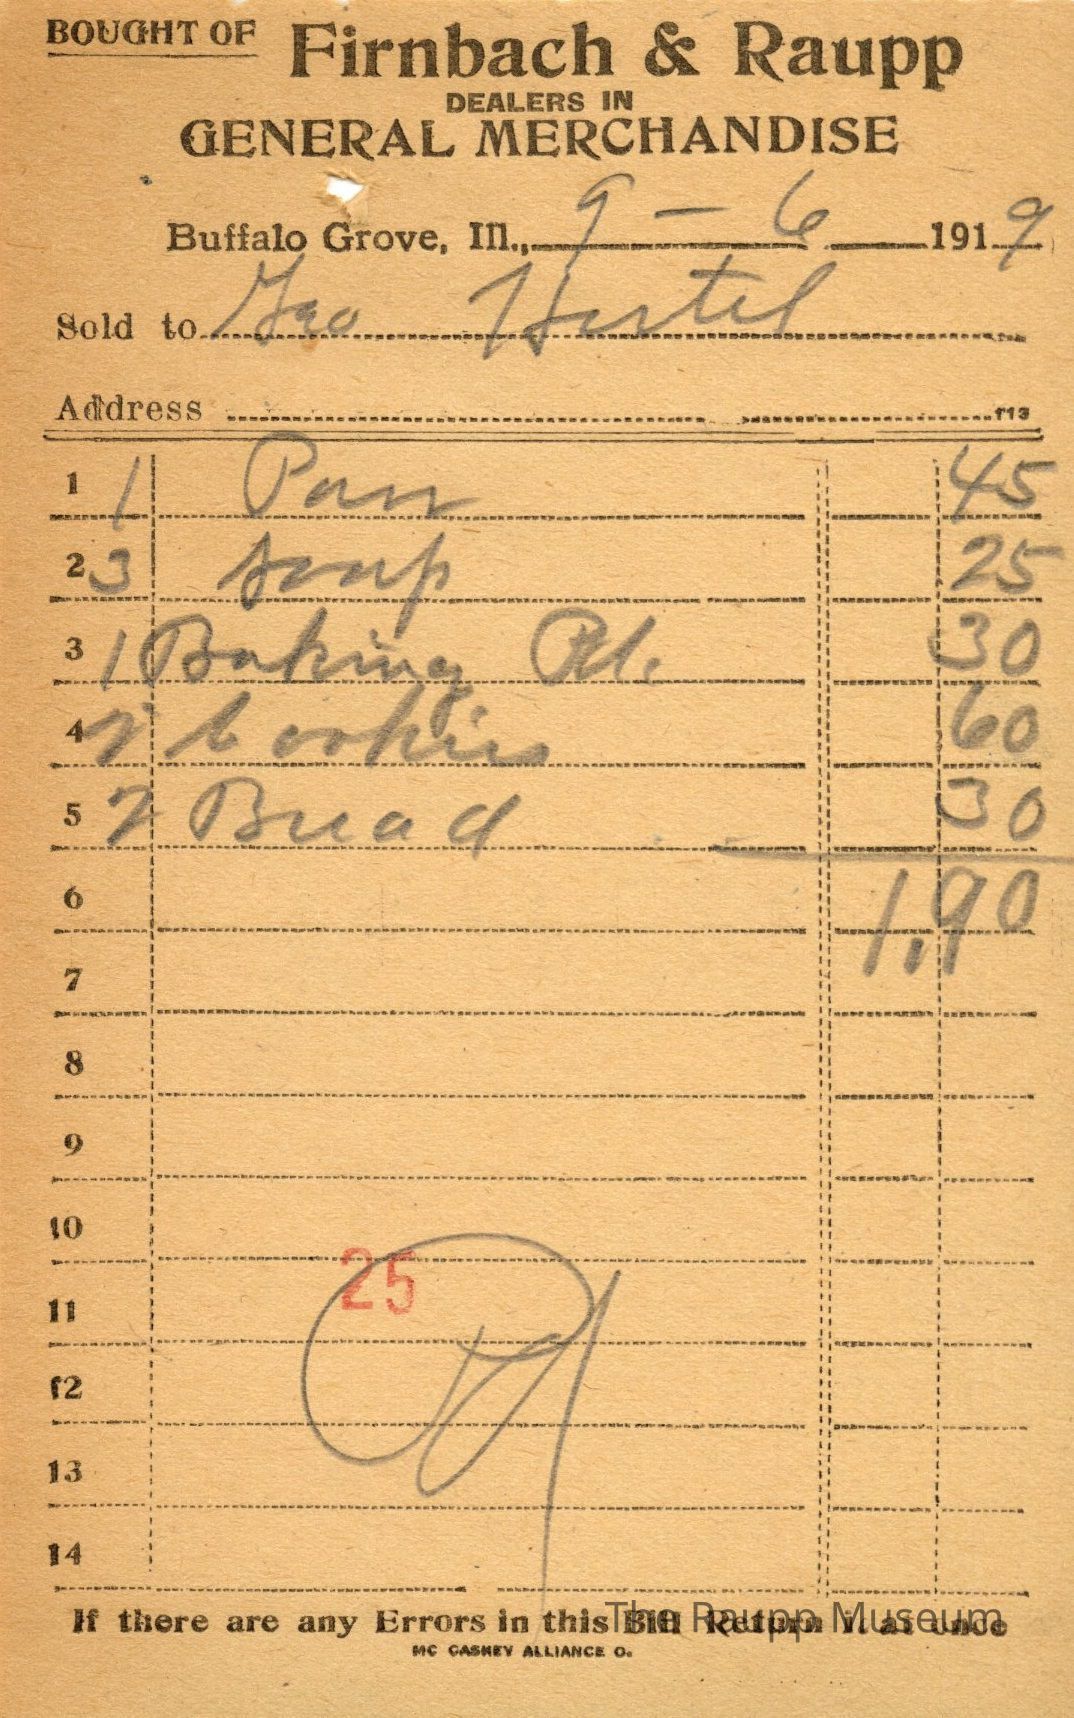 BOUGHT OF Firnbach & Raupp
DEALERS IN
GENERAL MERCHANDISE
Buffalo Grove, Ill., 9 - 6 1919
Sold to Geo Hertel
Address
f13
1 1 Pan 45
2 3 Soap 25
3 1 Baking Pd. 30
4 2 Cookies 60
5 2 Bread 30
6 1.90
7
8
9
10
25
11
12
13
14
If there are any Errors in this Bill Return it at once
The Raupp Museum
MC CASKEY ALLIANCE O.